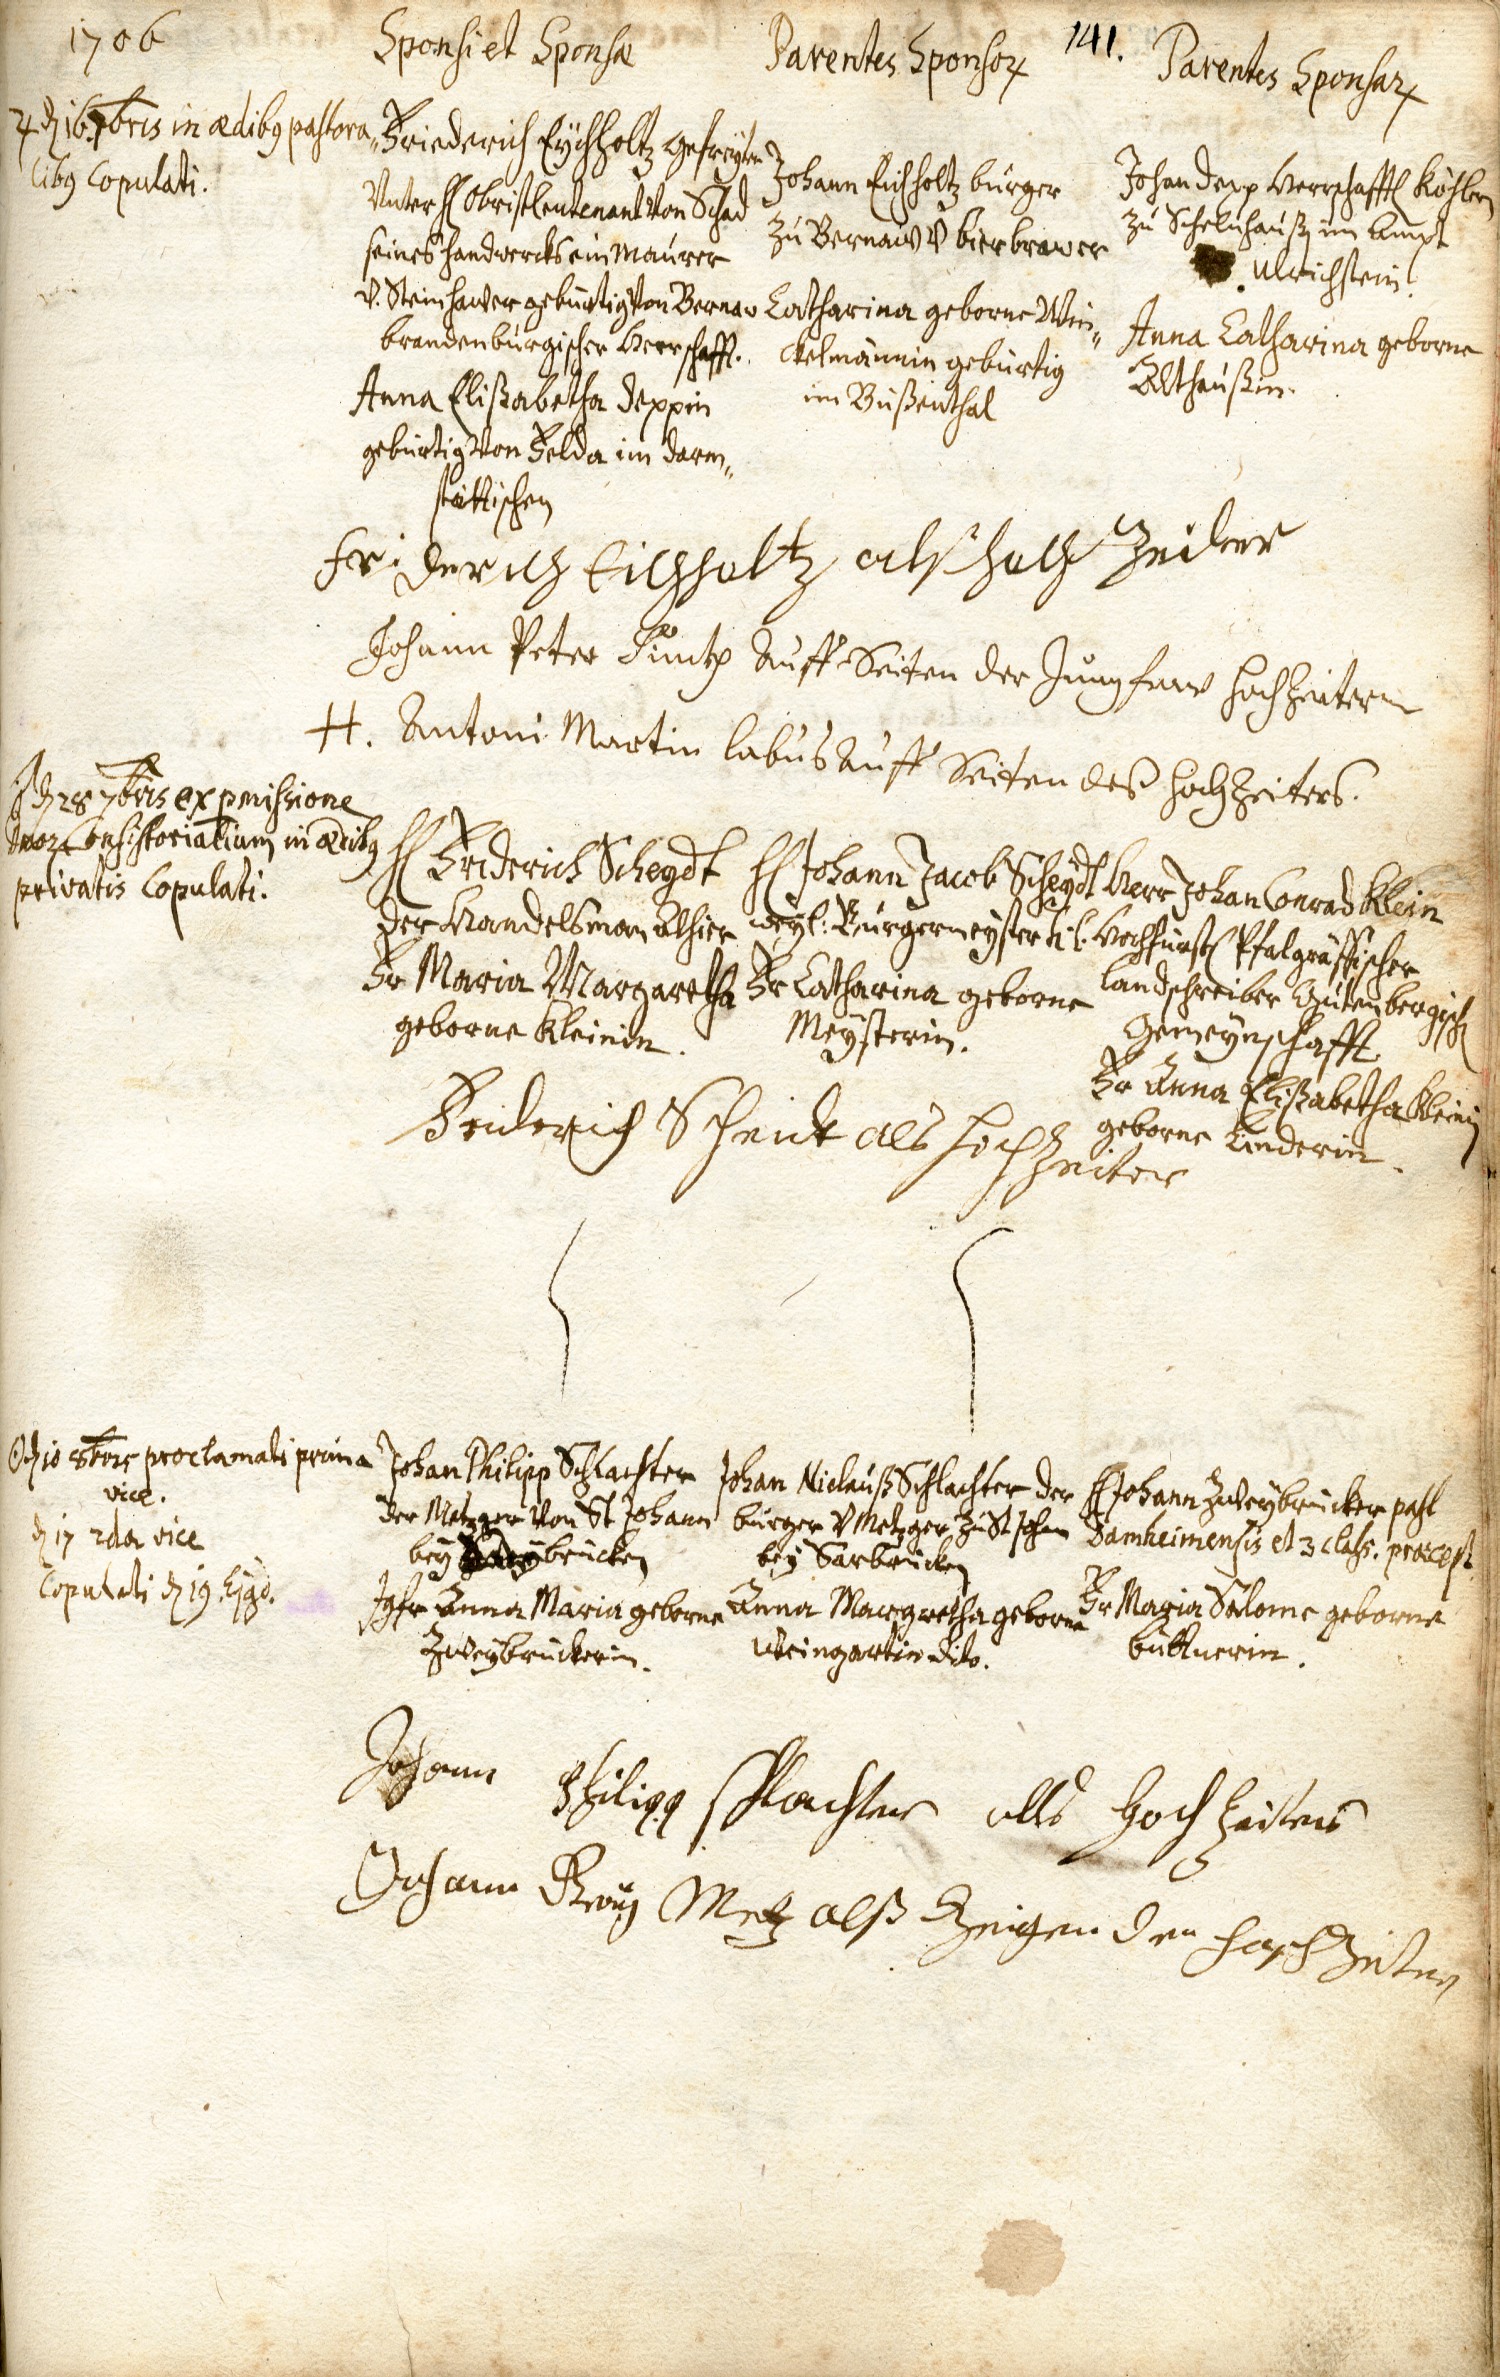 1706
Sponsi et Sponsæ
Parentes Sponsor
141.
Parentes Sponsar
16 7bris in ædibq pastora„
libq Copulati.
Friederich Eychholtz gefreyter
Unter H Obristleutenant von Schad
seines handwercks ein Maurer
v. Steinhawer gebürtig von Bernaw
brandenburgischer Herrschafft.
Anna Elisabetha Deppin
gebürtig von Felda im darm„
stättischen
Johann Eichholtz burger
zu Bernaw v bierbrawer
Catharina geborne Win„
ckelmännin gebürtig
im Bußenthal
Johan Depp Herrschafftl Köhlern
zu Schelnhauß im Ampt
Ulrichstein.
Anna Catharina geborne
Althaußin.
Friderich Eichholtz alß hochzeiter
Johann Peter auff Seiten der Jungfraw hochzeiterin
H. Antoni Martin labus auff Seiten deß hochzeiters.
28 7bris ex pmissione
Consistorialium in ædibq
privatis Copulati.
H Friderich Scheydt
der Handelsman Alhier
Fr Maria Margaretha
geborne Kleinin.
H Johann Jacob Scheydt
weyl: Burgermeyster
Fr Catharina geborne
Meysterin.
Herr Johan Conrad Klein
Hochfürstl Pfalgräffischer
landschreiber Gutenbergisch
Gemeynschafft
Fr Anna Elisabetha Kleinin
geborne Linderin.
Friderich Scheidt als hochzeiter
10 8bris proclamati prima
vice.
d 17 2da vice
Copulati d 19. Ejgd.
Johan Philipp Schlachter
der Metzger von St Johann
bey brücken
Jgfr Anna Maria geborne
Zweybruckerin.
Johan Niclauß Schlachter der
burger v Metzger zu St Johan
bey Sarbrücken
Anna Margretha geborne
Weingartin dito.
H Johann Zweybrucker past
Damheimensis et 3 class. præcept.
Fr Maria Salome geborne
büttnerin.
Johann Philipp Schlachter alls Hochzeiter
Johann Metz alß Zeigen den hochzeiter